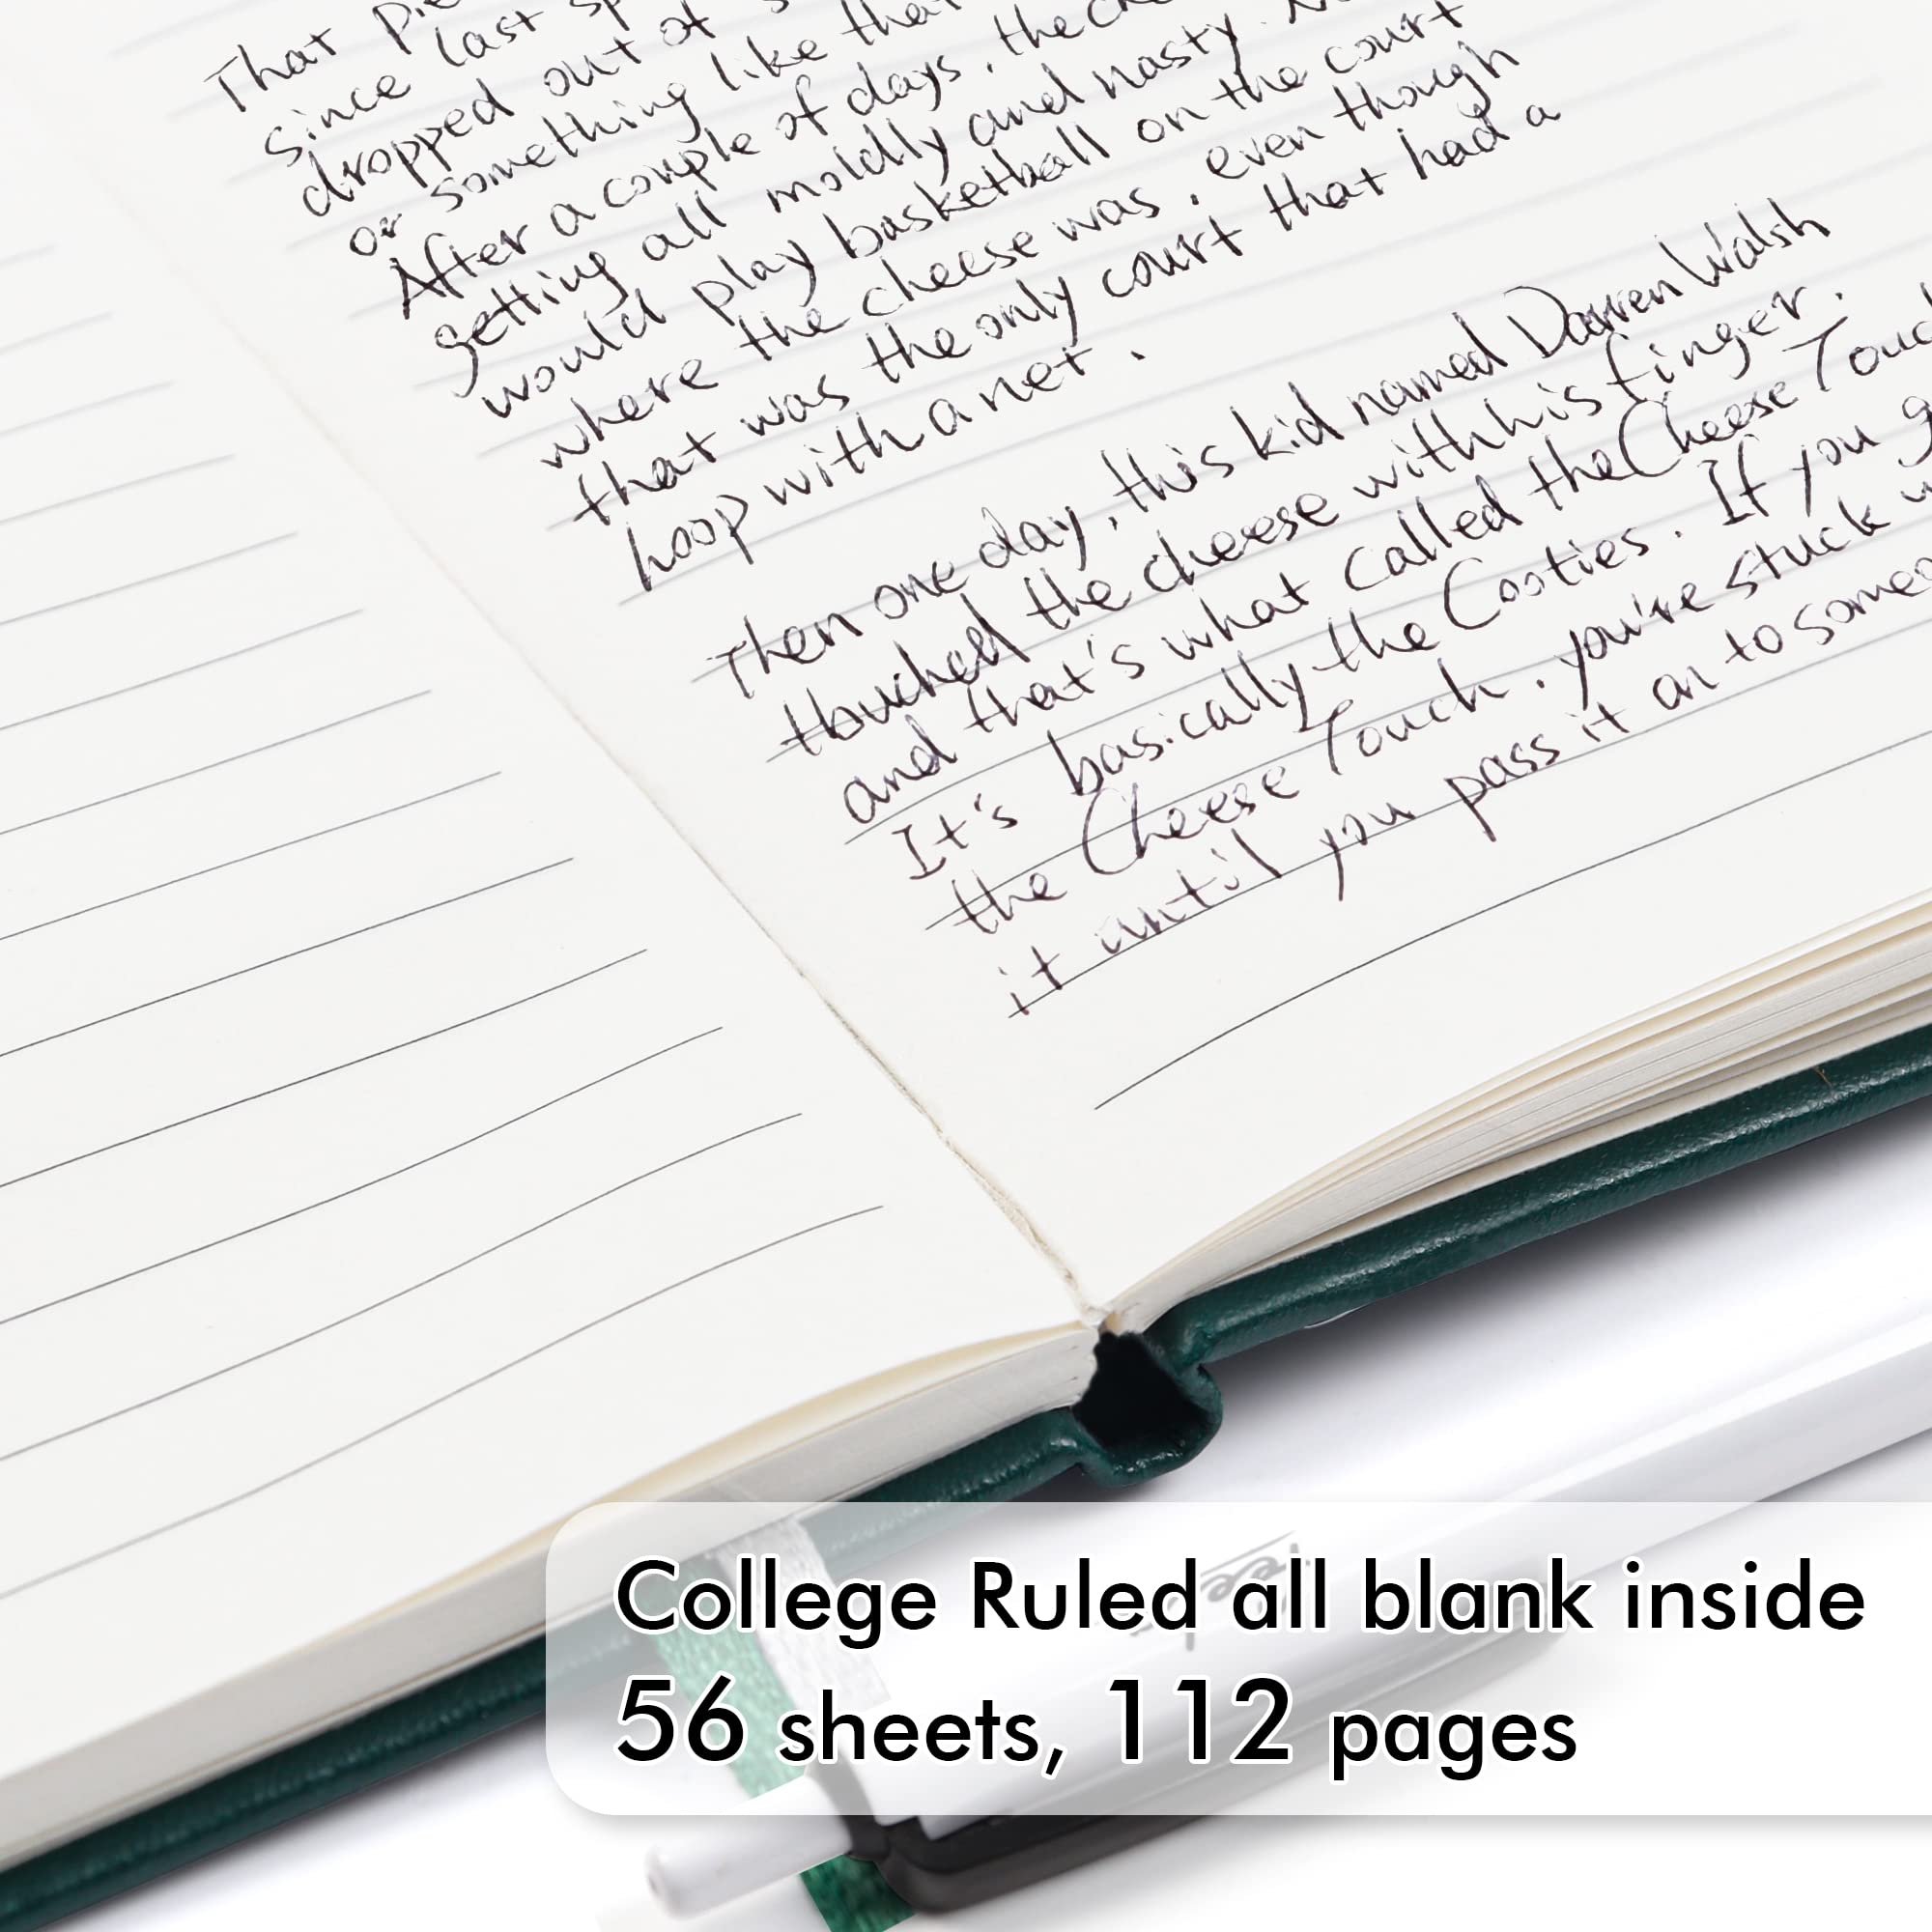 That Pie
since last sp
dropped out of s
or something like that
After a couple of days, the Che
getting all moldly and nasty. N
would play basketball on the court
where the cheese was, even though
that was the only court that had a
hoop with a net.
Then one day, this kid named Darren Walsh
thuched the cheese with his finger.
and that's what called the Cheese Touc
It's basically the Cooties. If you g
the Cheese Touch, you're stuck w
it until you pass it on to someo
College Ruled all blank inside
56 sheets, 112 pages